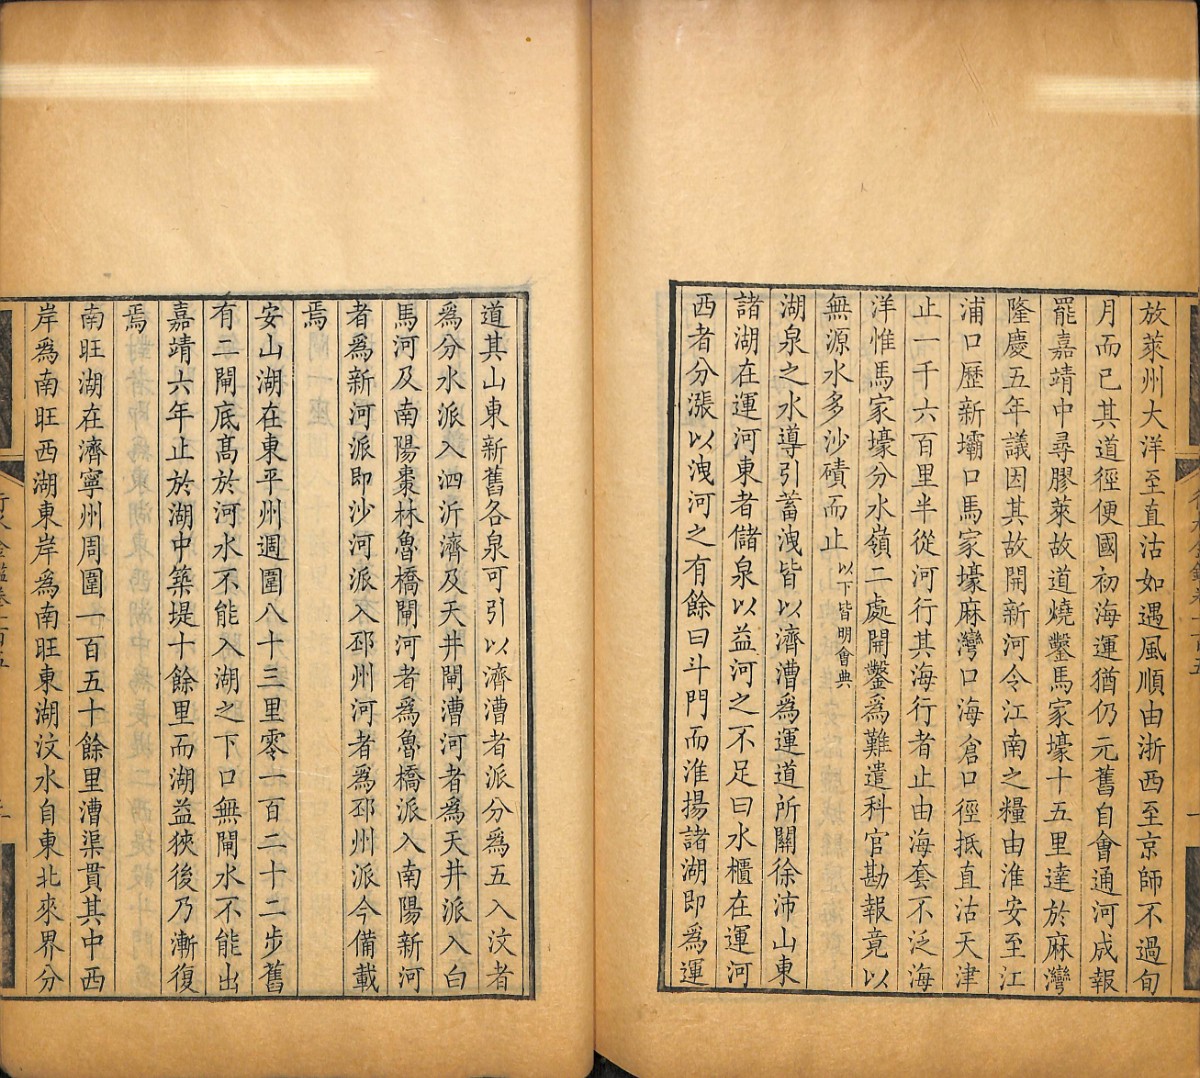 放萊州大洋至直沽如遇風順由浙西至京師不過旬
月而已其道徑便國初海運猶仍元舊自會通河成報
罷嘉靖中尋膠萊故道燒鑿馬家壕十五里達於麻灣
隆慶五年議因其故開新河令江南之糧由淮安至江
浦口歷新壩口馬家壕麻灣口海倉口徑抵直沽天津
止一千六百里半從河行其海行者止由海套不泛海
洋惟馬家壕分水嶺二處開鑿為難遣科官勘報竟以
無源水多沙磧而止以下皆明會典
湖泉之水導引蓄洩皆以濟漕為運道所關徐沛山東
諸湖在運河東者儲泉以益河之不足曰水櫃在運河
西者分漲以洩河之有餘曰斗門而淮揚諸湖即為運
道其山東新舊各泉可引以濟漕者派分為五入汶者
為分水派入泗沂濟及天井閘漕河者為天井派入白
馬河及南陽棗林魯橋閘河者為魯橋派入南陽新河
者為新河派即沙河派入邳州河者為邳州派今備載
焉
安山湖在東平州週圍八十三里零一百二十二步舊
有二閘底髙於河水不能入湖之下口無閘水不能出
嘉靖六年止於湖中築堤十餘里而湖益狹後乃漸復
焉
南旺湖在濟寧州周圍一百五十餘里漕渠貫其中西
岸為南旺西湖東岸為南旺東湖汶水自東北來界分